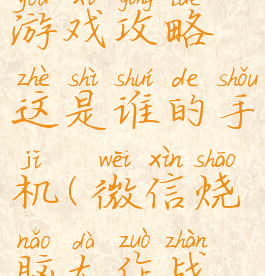 yóu xì gōng lüè
游戏攻略
zhè shì shuí de shǒu
这是谁的手
jī wēi xìn shāo
机(微信烧
nǎo dà zuò zhàn
脑大作战